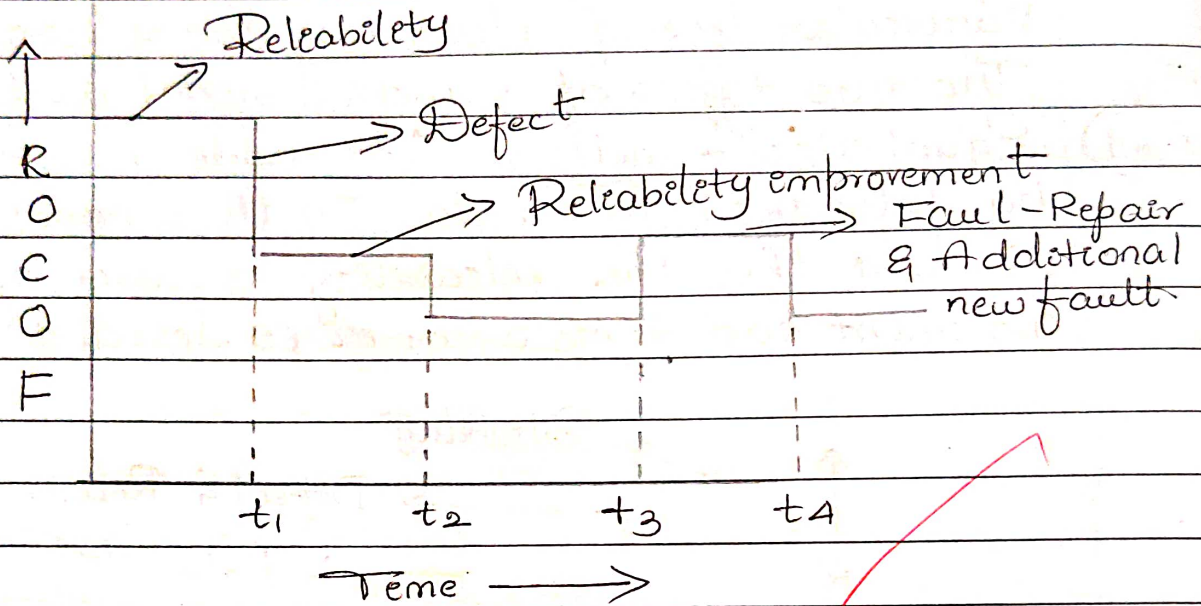 Reliability
Defect
Reliability improvement
Faul-Repair
& Additional
new fault
R
O
C
O
F
t1 t2 t3 t4
Time